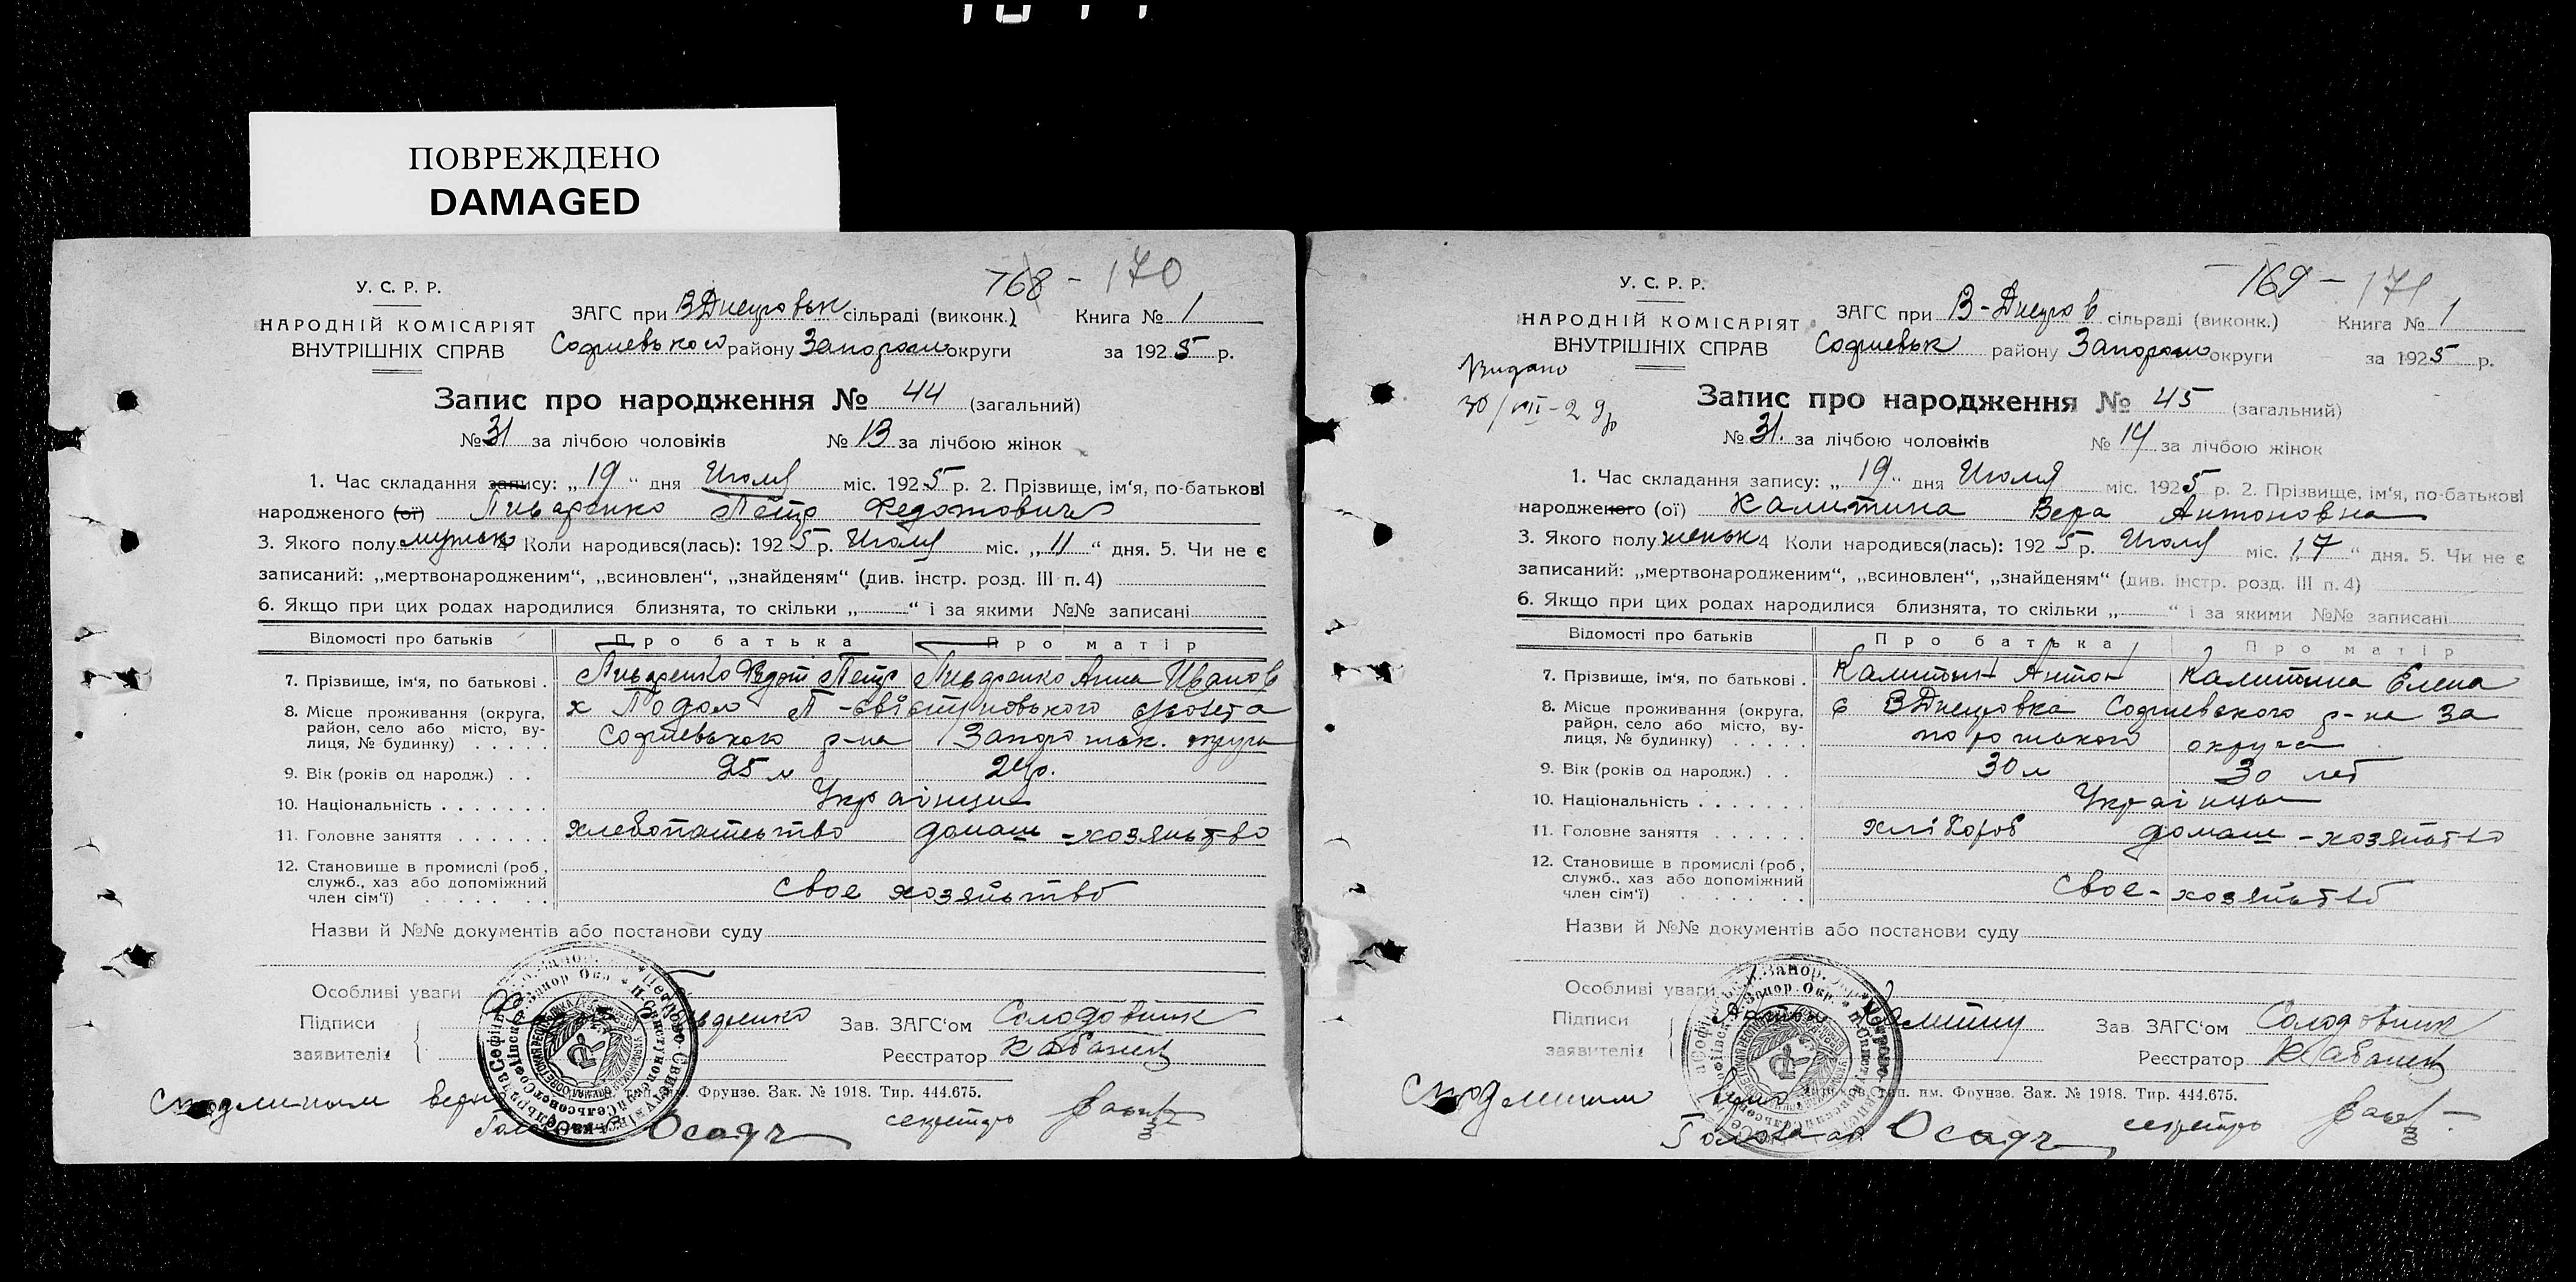 ПОВРЕЖДЕНО
DAMAGED
168 - 170
У. С. Р. Р.
НАРОДНІЙ КОМІСАРІЯТ
ВНУТРІШНІХ СПРАВ
ЗАГС при ВДнепровськ сільраді (виконк.) Книга № 1
Софиевського району Запорож округи за 1925 р.
Запис про народження № 44 (загальний)
№ 31 за лічбою чоловіків № 13 за лічбою жінок
1. Час складання запису: „ 19 “ дня Июля міс. 1925 р. 2. Прізвище, ім‘я, по-батькові
народженого (ої) Пивьаренко Петр Федотович
3. Якого полу мужськ 4 Коли народився(лась): 1925 р. Июля міс. „ 11 “ дня. 5. Чи не є
записаний: „мертвонародженим“, „всиновлен“, „знайденям“ (див. інстр. розд. III п. 4)
6. Якщо при цих родах народилися близнята, то скільки „ “ і за якими №№ записані
Відомості про батьків Про батька Про матір
7. Прізвище, ім‘я, по батькові . Федот Петр Анна Иванов
8. Місце проживання (округа, район, село або місто, вулиця, № будинку) х Подол П-Свістуновського
Софиевського р-на Запорожск. округи
9. Вік (років од народж.) . . 25 л 24 р.
10. Національність . . . . . . . Українци
11. Головне заняття . . . . . . хлебопашество домаш-хозяйство
12. Становище в промислі (роб, служб., хаз або допоміжний член сім‘ї) . . . . . . . свое хозяйство
Назви й №№ документів або постанови суду
Особливі уваги
Підписи заявителів Зав. ЗАГС‘ом Солодовник
Реєстратор Кабанец
Фрунзе. Зак. № 1918. Тир. 444.675.
С подлиным верно
Голова Осадч секретрь
169 - 171
У. С. Р. Р.
НАРОДНІЙ КОМІСАРІЯТ
ВНУТРІШНІХ СПРАВ
ЗАГС при В-Днепров сільраді (виконк.) Книга № 1
Софиевськ району Запорож округи за 1925 р.
Видано
30/VII-2
Запис про народження № 45 (загальний)
№ 31. за лічбою чоловіків № 14 за лічбою жінок
1. Час складання запису: „ 19 “ дня Июля міс. 1925 р. 2. Прізвище, ім‘я, по-батькові
народженого (ої) Калитина Вера Антоновна
3. Якого полу женськ 4 Коли народився(лась): 1925 р. Июля міс. „ 17 “ дня. 5. Чи не є
записаний: „мертвонародженим“, „всиновлен“, „знайденям“ (див. інстр. розд. III п. 4)
6. Якщо при цих родах народилися близнята, то скільки „ “ і за якими №№ записані
Відомості про батьків Про батька Про матір
7. Прізвище, ім‘я, по батькові . Калитин Антон Калитина Елена
8. Місце проживання (округа, район, село або місто, вулиця, № будинку) с ВДнепровка Софиевського р-на За
порожського округа
9. Вік (років од народж.) . . 30 л 30 лет
10. Національність . . . . . . . Українци
11. Головне заняття . . . . . . хлібороб домаш-хозяйство
12. Становище в промислі (роб, служб., хаз або допоміжний член сім‘ї) . . . . . . . свое-хозяйство
Назви й №№ документів або постанови суду
Особливі уваги
Підписи заявителів Зав. ЗАГС‘ом Солодовник
Реєстратор Кабанец
им. Фрунзе. Зак. № 1918. Тир. 444.675.
С подлиным верно
Голова Осадч секретрь